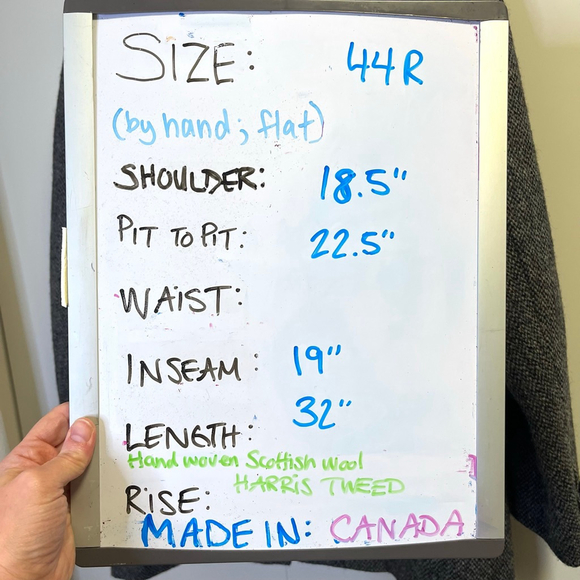 SIZE: 44R
(by hand; flat)
SHOULDER: 18.5"
PIT TO PIT: 22.5"
WAIST:
INSEAM: 19"
LENGTH: 32"
Hand woven Scottish wool
HARRIS TWEED
RISE:
MADE IN: CANADA